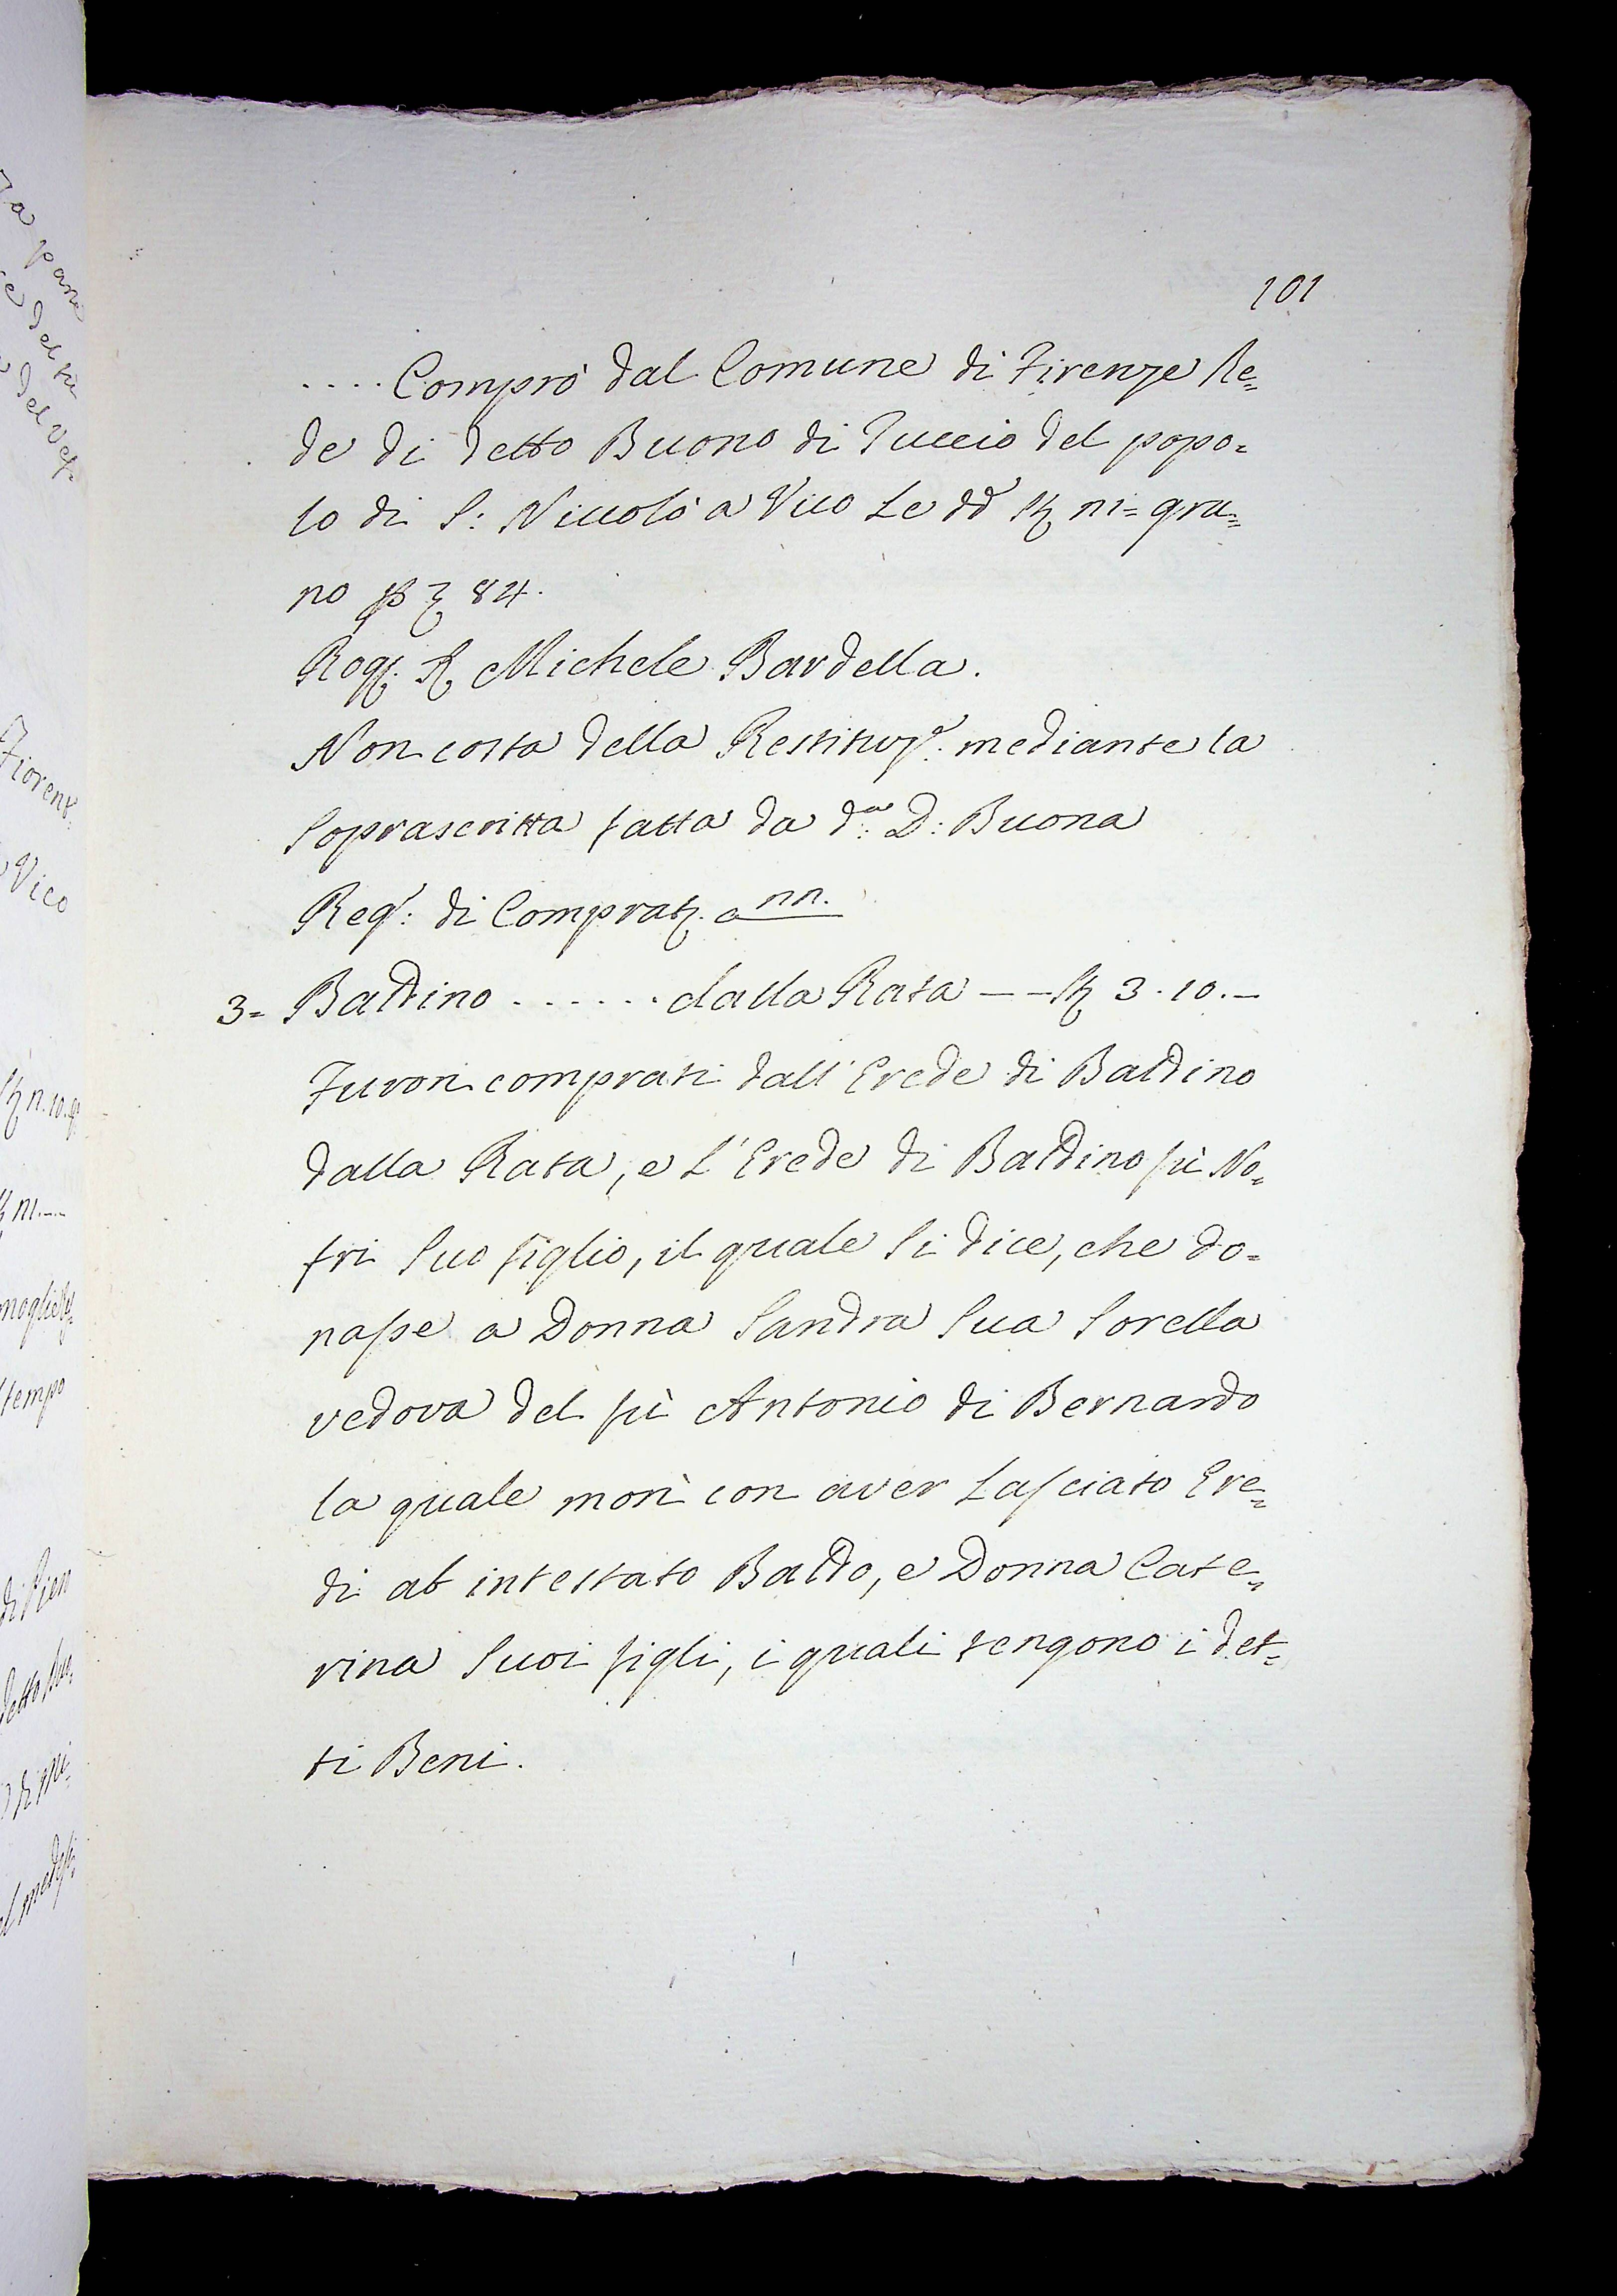 101
.... Comprò dal Comune di Firenze Re=
de di detto Buono di Puccio del popo=
lo di S: Niccolò a Vico Le dd.e St ni= gra=
no p 84.
Rog. Michele Bardella.
Non costa della Restituz.e mediante la
Soprascritta fatta da d.a D: Buona
Reg.: di Comprat. a nn.
3= Baldino ...... dalla Rata -- St 3. 10. -
Furon comprati dall' Erede di Baldino
dalla Rata, e L' Erede di Baldino fù No=
fri Suo figlio, il quale Si dice, che do=
nasse a Donna Sandra Sua Sorella
vedova del fù Antonio di Bernardo
la quale morì con aver Lasciato Ere=
di ab intestato Baldo, e Donna Cate=
rina Suoi figli, i quali tengono i det=
ti Beni.
Fiorent:
Vico
tempo